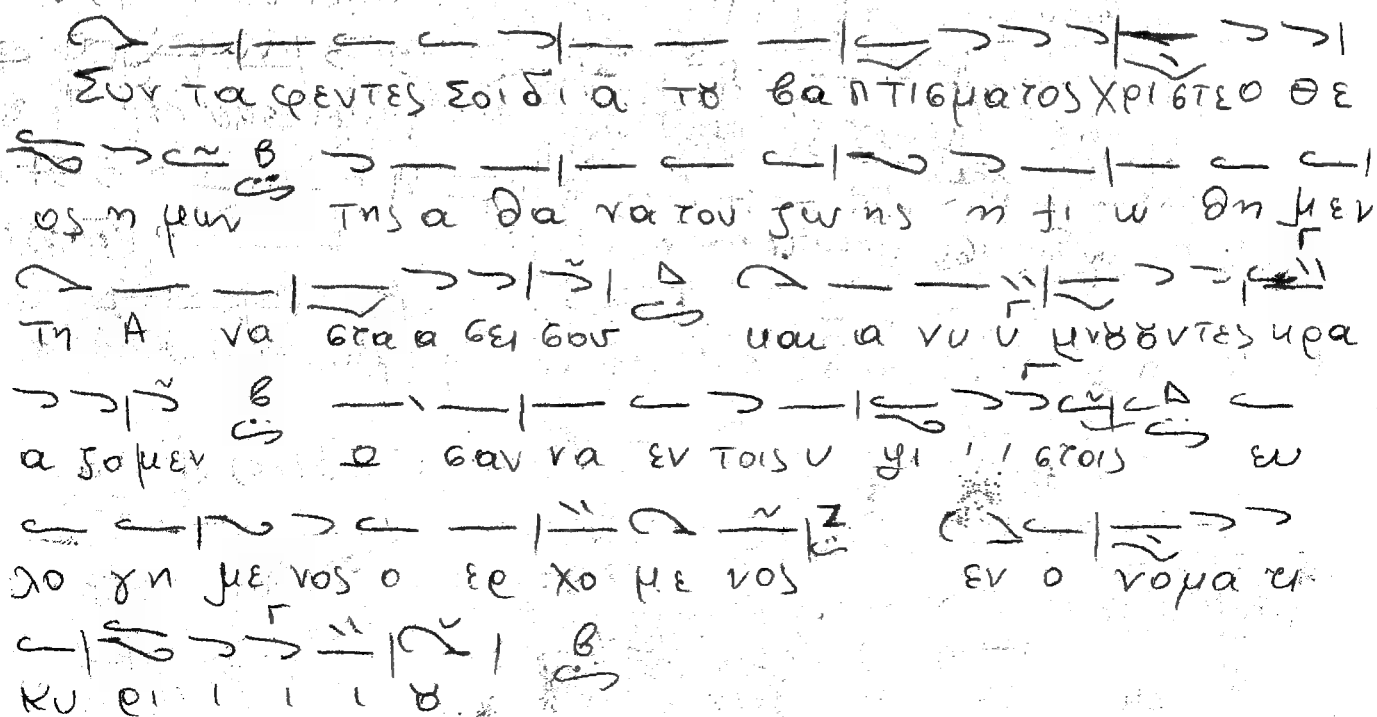 Συν τα φεντες Σοι δι α τȣ βα πτισματος Χριστε ο Θε
ος η μων της α θα να του ζω ης η ξι ω θη μεν
τη Α να στα α σει σου και α νυ υ μνȣȣντες κρα
α ζομεν ο σαν να εν τοις υ ψι ι ι στοις ευ
λο γη με νος ο ερ χο με νος εν ο νοματι
Κυ ρι ι ι ι ȣ